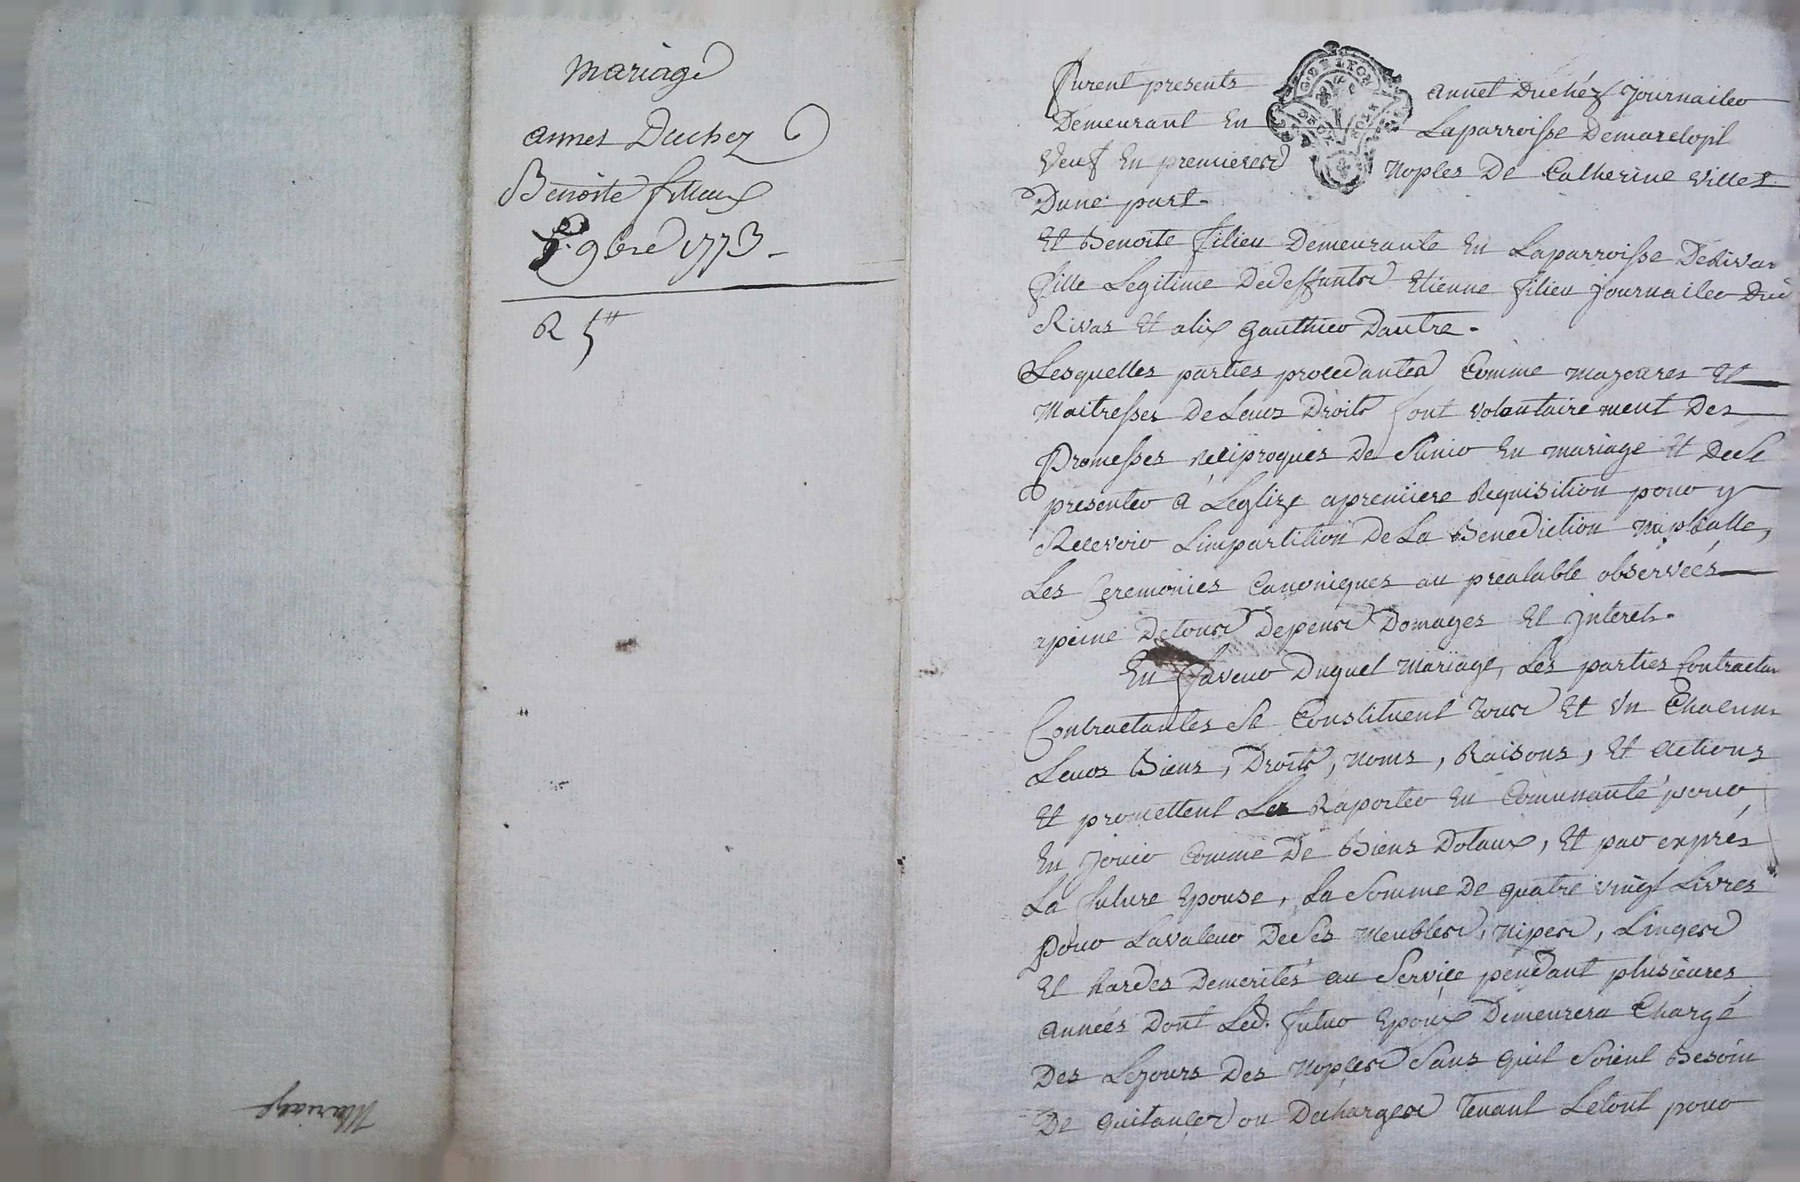 mariage
annet Duchez
Benoite filieux
9bre 1773 -
R 5tt
Mariage
furent presents annet Duchéz Journailer
Demeurant En Laparroisse Demarclopt
Veuf En premieres Noples De Catherine Villet
Dune part.
Et Benoite filieu Demeurante En Laparroisse De Rivas
fille Legitime Dedeffunts Etienne filieu Journailer Dud
Rivas Et alix gauthier Dautre.
Lesquelles parties procedantes Comme mageures Et
Maitresses De Leurs Droits font volontairement Des
Promesses reciproques De Sunir En mariage Et De Se
presenter a Leglize apremiere Requisition pour y
Recevoir Limpartition De La Benediction nuptialle,
Les Ceremonies Canoniques au prealable observées
apeine De tous Depens Domages Et Interets.
En faveur Duquel Mariage, Les parties Contractan
Contractantes Se Constituent tous Et Un Chacun
Leurs Biens, Droits, Noms, Raisons, Et actions
Et promettent Les Raporter En Comunauté pour
En Jouir Comme De Biens Dotaux, Et par exprés
La future Epouse, La Somme De quatre vingt Livres
pour Lavaleur De Ses Meubles, Nipes, Linges
Et hardes Demerités au Service pendant plusieures
années Dont Led. futur Epoux Demeurera Chargé
Des Lejours Des Noples Sans quil Soient Besoin
De quitances ou Decharges tenant Letout pour